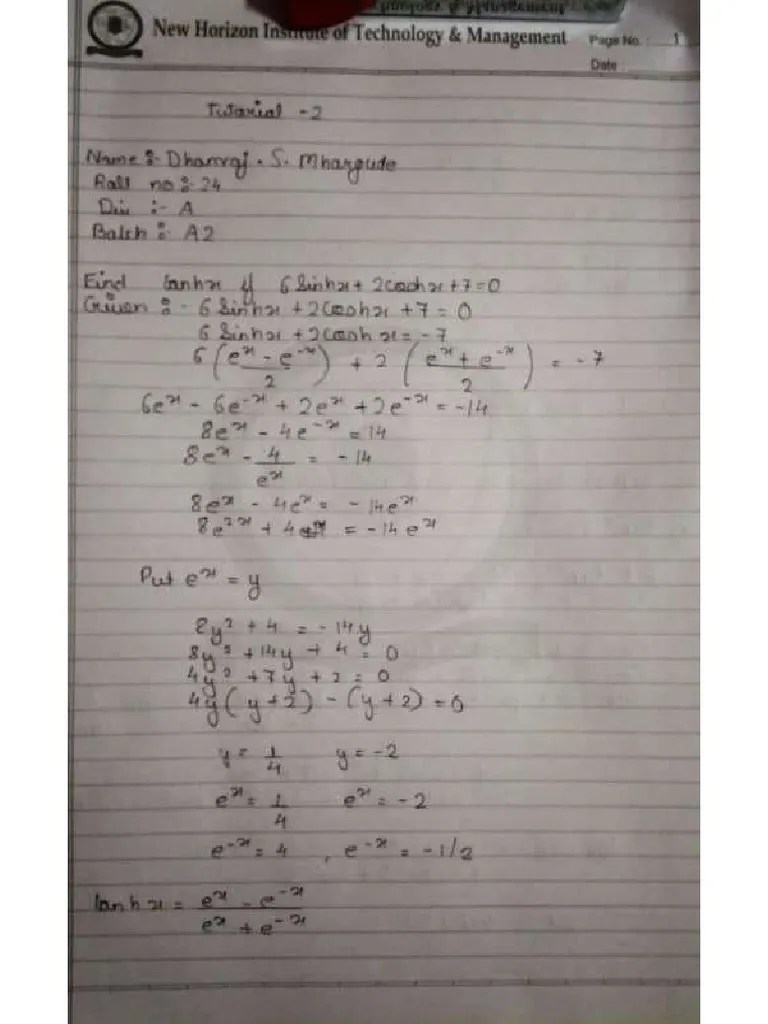 New Horizon Institute of Technology & Management Page No. : 1
Date :
Tutorial - 2
Name :- Dhanraj . S. Mhargude
Roll no :- 24
Div :- A
Batch :- A2
Find tanhx if 6 Sinhx + 2coshx + 7 = 0
Given :- 6 Sinhx + 2Coshx + 7 = 0
6 Sinhx + 2Cosh x = -7
6 ( (e^x - e^-x) / 2 ) + 2 ( (e^x + e^-x) / 2 ) = -7
6e^x - 6e^-x + 2e^x + 2e^-x = -14
8e^x - 4e^-x = 14
8e^x - 4 / e^x = -14
8e^x - 4e^x = -14e^x
8e^2x + 4 = -14 e^x
Put e^x = y
8y² + 4 = -14y
8y² + 14y + 4 = 0
4y² + 7y + 2 = 0
4y ( y + 2 ) - ( y + 2 ) = 0
y = 1/4 y = -2
e^x = 1/4 e^x = -2
e^-x = 4 , e^-x = -1/2
tanh x = (e^x - e^-x) / (e^x + e^-x)